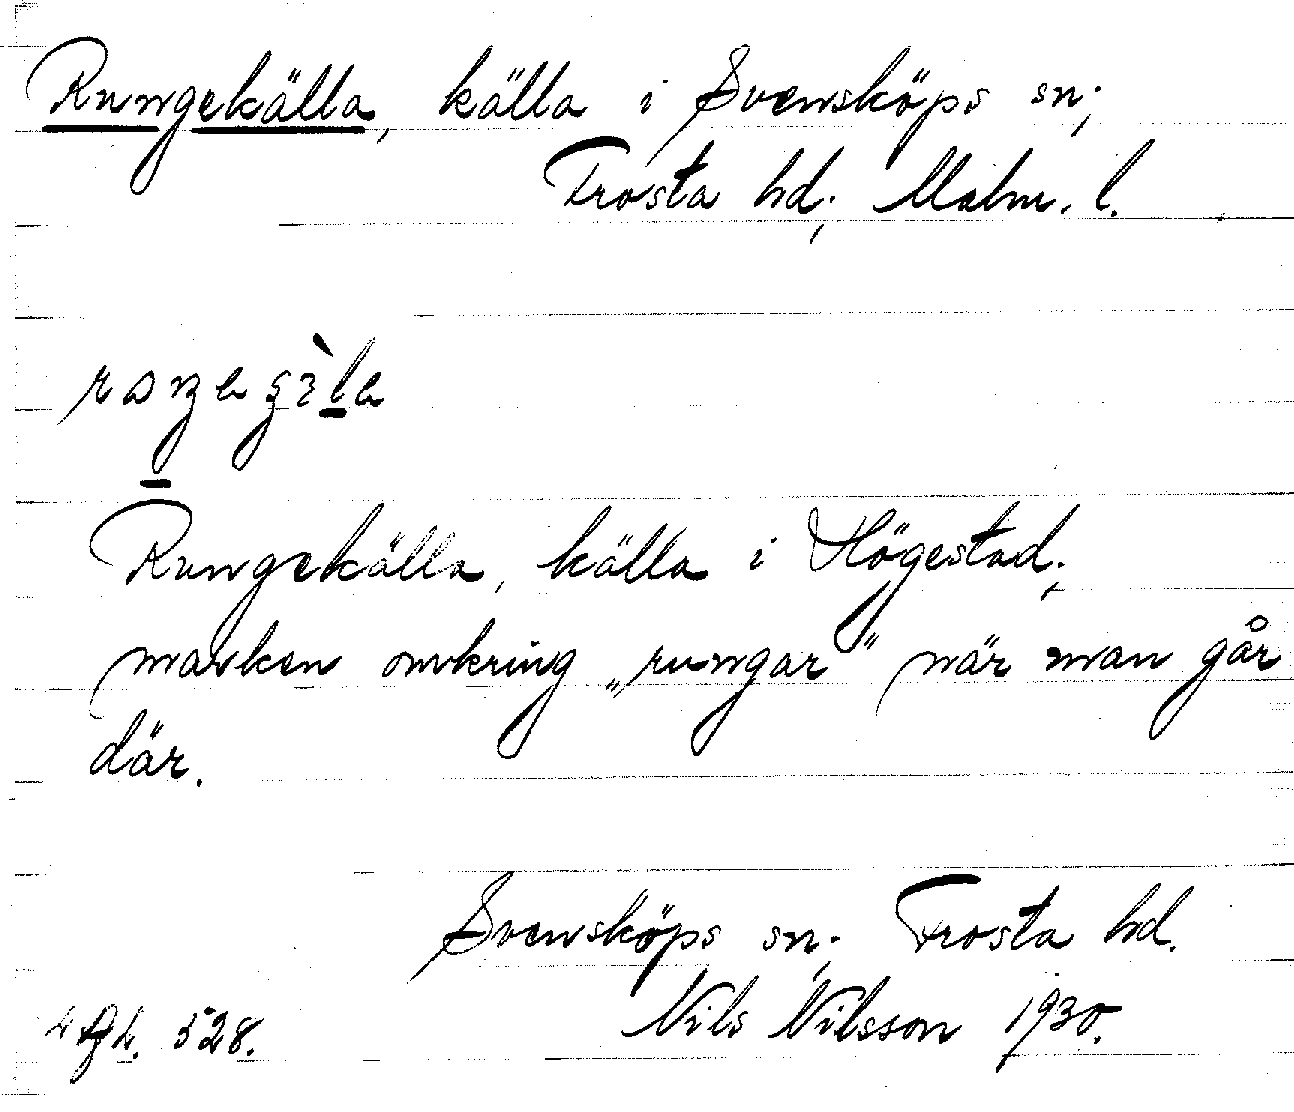 Rungekälla, källa i Svensköps sn;
Frosta hd; Malm. l.
Rungekälla, källa i Högestad;
marken omkring „rungar” när man går
där.
Svensköps sn; Frosta hd.
Nils Nilsson 1930.
528.